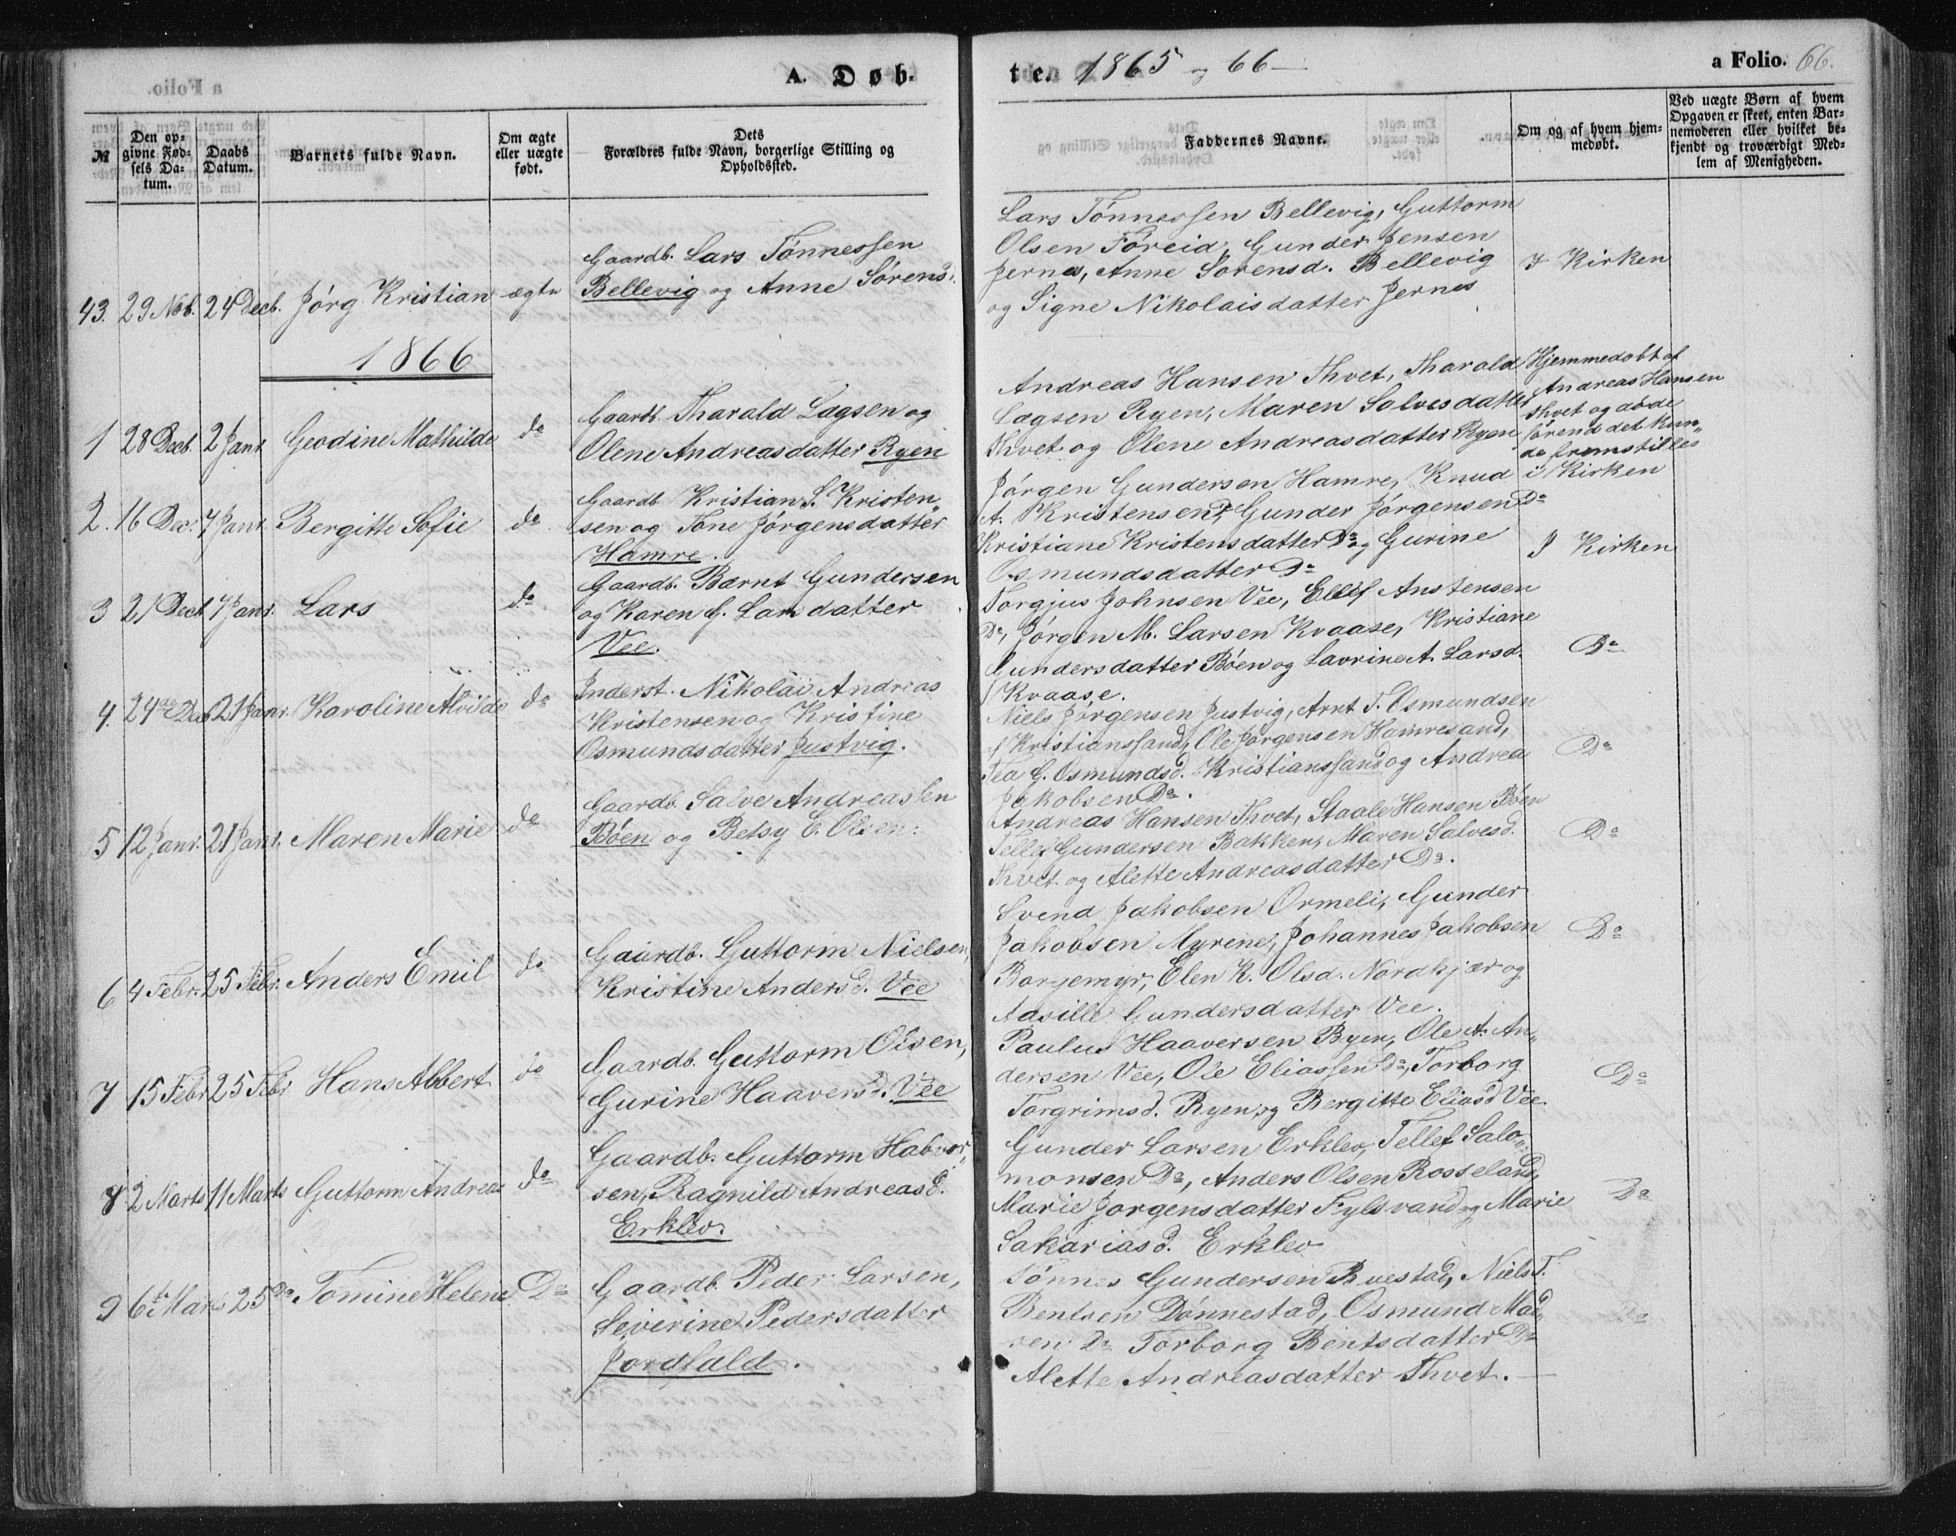 a Folio.
A. Døb-
№
Den op-
givne Fød-
sels Da-
tum.
Daabs
Datum.
Barnets fulde Navn.
Om ægte
eller uægte
født.
Dets
Forældres fulde Navn, borgerlige Stilling og
Opholdssted.
43. 29 Nob. 24 Decb. Jörg Kristian ægte
Gaardb. Lars Tönnessen
Bellevig og Anne Sörensd.
1866
1 28 Decb. 2 Janr. Geodine Mathilde do
Gaardb. Tharald Lagsen og
Olene Andreasdatter Ryen
2. 16 Dec. 7 Janr. Bergitte Sofie do
Gaardb. Kristian S. Kristen„
sen og Tone Jörgensdatter
Hamre.
3 21 Decb. 7 Janr. Lars do
Gaardb. Bernt Gundersen
og Karen G. Larsdatter
Vee.
4. 24de Decb 21 Janr. Karoline Alvilde do
Inderst. Nikolai Andreas
Kristensen og Kristine
Osmundsdatter Justvig.
5 12 Janr. 21 Janr. Maren Marie do
Gaardb. Salve Andreassen
Böen og Betsy C. Olsen.
6 4 Febr. 25 Febr. Anders Emil do
Gaardb. Guttorm Nielsen,
Kristine Andersd. Vee
7 15 Febr 25 Febr Hans Albert do
Gaardb. Guttorm Olsen,
Gurine Haaversd. Vee
8 2 Marts 11 Marts Guttorm Andreas do
Gaardb. Guttorm Halvor,
sen, Ragnild Andreasd.
Erklev.
9 6te Marts 25 Do Tomine Helene Do
Gaardb. Peder Larsen,
Severine Pedersdatter
Jordfald.
te. 1865 og 66
a Folio. 66.
Faddernes Navne.
Om og af hvem hjem-
medøbt.
Ved uægte Børn af hvem
Opgaven er skeet, enten Bar-
nemoderen eller hvilket be-
kjendt og troværdigt Med-
lem af Menigheden.
Lars Tönnessen Bellevig, Guttorm
Olsen Föreid, Gunder Jensen
Jernes, Anne Sörensd. Bellevig
og Signe Nikolaisdatter Jernes
I Kirken
Andreas Hansen Thvet, Tharald
Lagsen Ryen, Maren Salvesdatter
Thvet og Olene Andreasdatter Ryen
Hjemmedöbt af
Andreas Hansen
Thvet og döde
förend det kun„
de fremstilles
i Kirken
Jörgen Gundersen Hamre, Knud
A. Kristensen Do, Gunder Jörgensen Do
Kristiane Kristensdatter Do og Gurine
Osmundsdatter Do
I Kirken
Torgjus Johnsen Vee, Ellef Anstensen
Do, Jörgen M. Larsen Kvaase, Kristiane
Gundersdatter Böen og Lavrine A. Larsd.
Kvaase.
Do
Niels Jörgensen Justvig, Arnt T. Osmundsen
Kristianssand, Ole Jörgensen Hamresand,
Tea G. Osmundsd. Kristianssand og Andrea
Jakobsen Do.
Do
Andreas Hansen Thvet, Staale Hansen Böen
Tellef Gundersen Bakken, Maren Salvesd.
Thvet og Alette Andreasdatter Do.
Do
Svend Jakobsen Ormeli, Gunder
Jakobsen Myrene, Johannes Jakobsen
Borjemyr, Elen K. Olsd. Nordkjær og
Aasille Gundersdatter Vee.
Do
Paulus Haaversen Ryen, Ole A. An„
dersen Vee, Ole Eliassen Do, Torborg
Torgrimsd. Ryen og Bergitte Eliasd Vee.
Do
Gunder Larsen Erklev, Tellef Salo„
monsen Do, Anders Olsen Rosseland,
Marie Jörgensdatter Fylsvand og Marie
Sakariasd. Erklev
Do
Tönnes Gundersen Rvestad, Niels T.
Bentsen Dönnestad, Osmund Mad„
sen Do Torborg Bentsdatter Do
Alette Andreasdatter Thvet.
Do